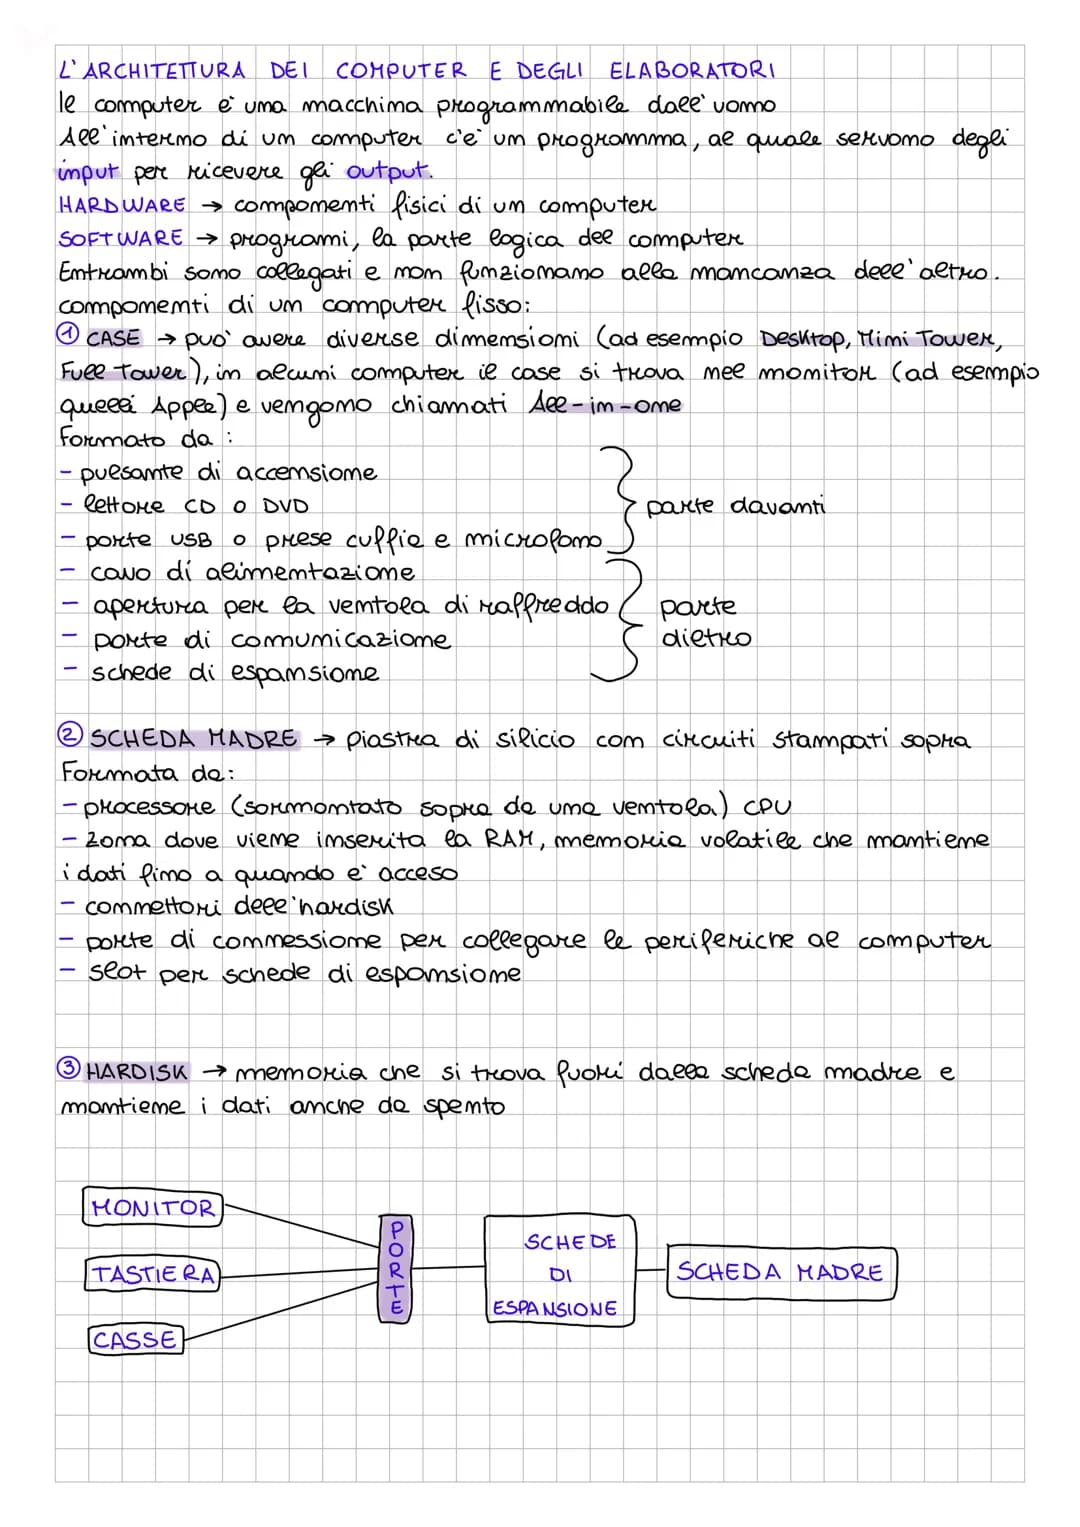 L'ARCHITETTURA DEI COMPUTER E DEGLI ELABORATORI
il computer è una macchina programmabile dall'uomo
All'interno di un computer c'è un programma, al quale servono degli
input per ricevere gli output.
HARDWARE → componenti fisici di un computer
SOFTWARE → programi, la parte logica del computer
Entrambi sono collegati e non funzionano alla mancanza dell'altro.
componenti di un computer fisso:
① CASE → può avere diverse dimensioni (ad esempio Desktop, Mini Tower,
Full Tower), in alcuni computer il case si trova nel monitor (ad esempio
quelli Apple) e vengono chiamati All-in-one
Formato da :
- pulsante di accensione
- lettore CD o DVD
- porte USB o prese cuffia e microfono
parte davanti
- cavo di alimentazione
- apertura per la ventola di raffreddo
- porte di comunicazione
- schede di espansione
parte
dietro
② SCHEDA MADRE → piastra di silicio con circuiti stampati sopra
Formata da:
- processore (sormontato sopra da una ventola) CPU
- zona dove viene inserita la RAM, memoria volatile che mantiene
i dati fino a quando è acceso
- connettori dell'hardisk
- porte di connessione per collegare le periferiche al computer
- slot per schede di espansione
③ HARDISK → memoria che si trova fuori dalla scheda madre e
mantiene i dati anche da spento
MONITOR
TASTIERA
CASSE
PORTE
SCHEDE
DI
ESPANSIONE
SCHEDA MADRE